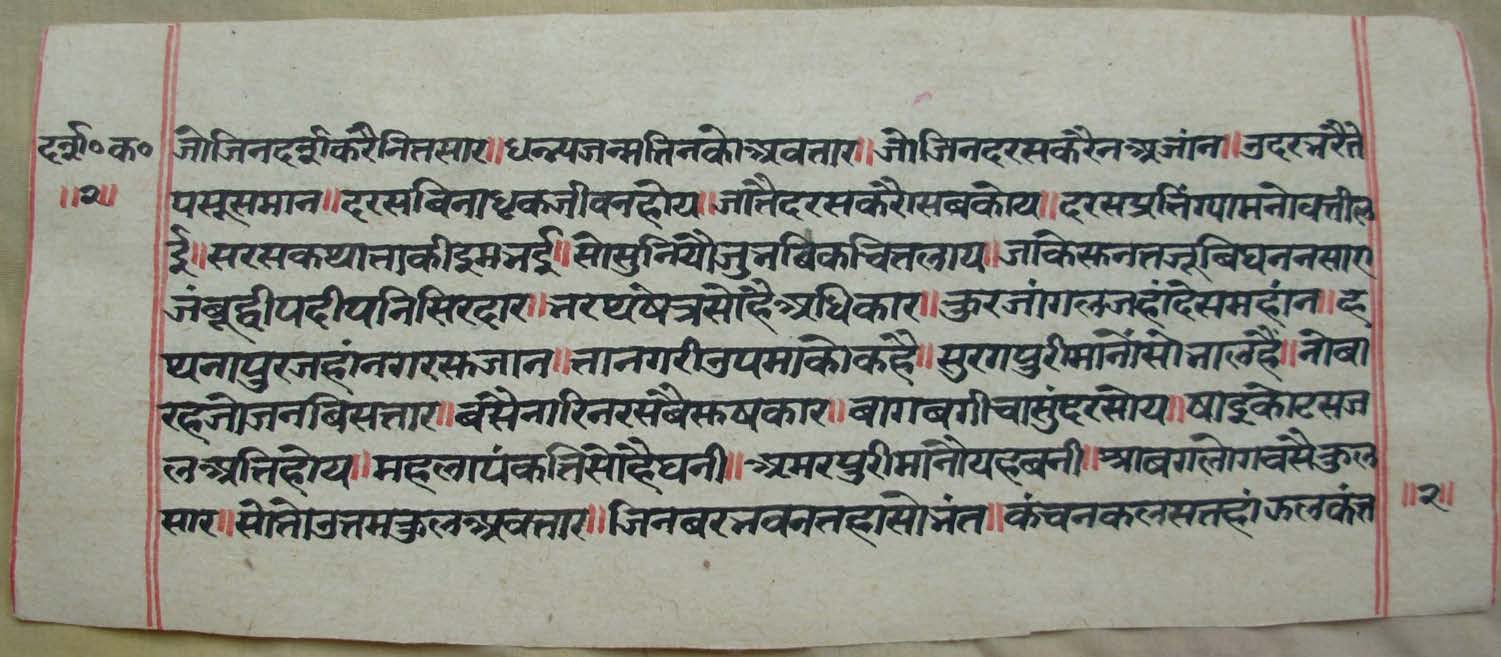 दर्श॰ क॰
॥२॥
जोजिनदर्शकरैनितसार॥धन्यजन्मतिनकोअवतार॥जोजिनदरसकरैनअजांन॥उदरभरैते
पसूसमान॥दरसबिनाधृकजीवनहोय॥जातैदरसकरौसबकोय॥दरसप्रतिंग्यामनोवतील
ई॥सरसकथाताकीइमभई॥सोसुनियौजुभबिकचितलाय॥जाकेसुनतजूबिघननसाए
जंबूद्वीपदीपनिसिरदार॥भरथषेत्रसोहैअधिकार॥कुरजांगलजहांदेसमहांन॥ह
थनापुरजहांनगरसुजान॥तानगरीउपमाकोकहै॥सुरगपुरीमानौंसोभालहै॥नोबा
रहजोजनबिसतार॥बसैनारिनरसबैसुषकार॥बागबगीचासुंदरसोय॥षाइकोटसज
लअतिहोय॥महलापंकतिसोहैघनी॥अमरपुरीमानौयहबनी॥श्राबगलोगवसैकुल
सार॥सोतोउतमकुलअवतार॥जिनबरभवनतहासोभंत॥कंचनकलसतहांझलकंत
॥२॥